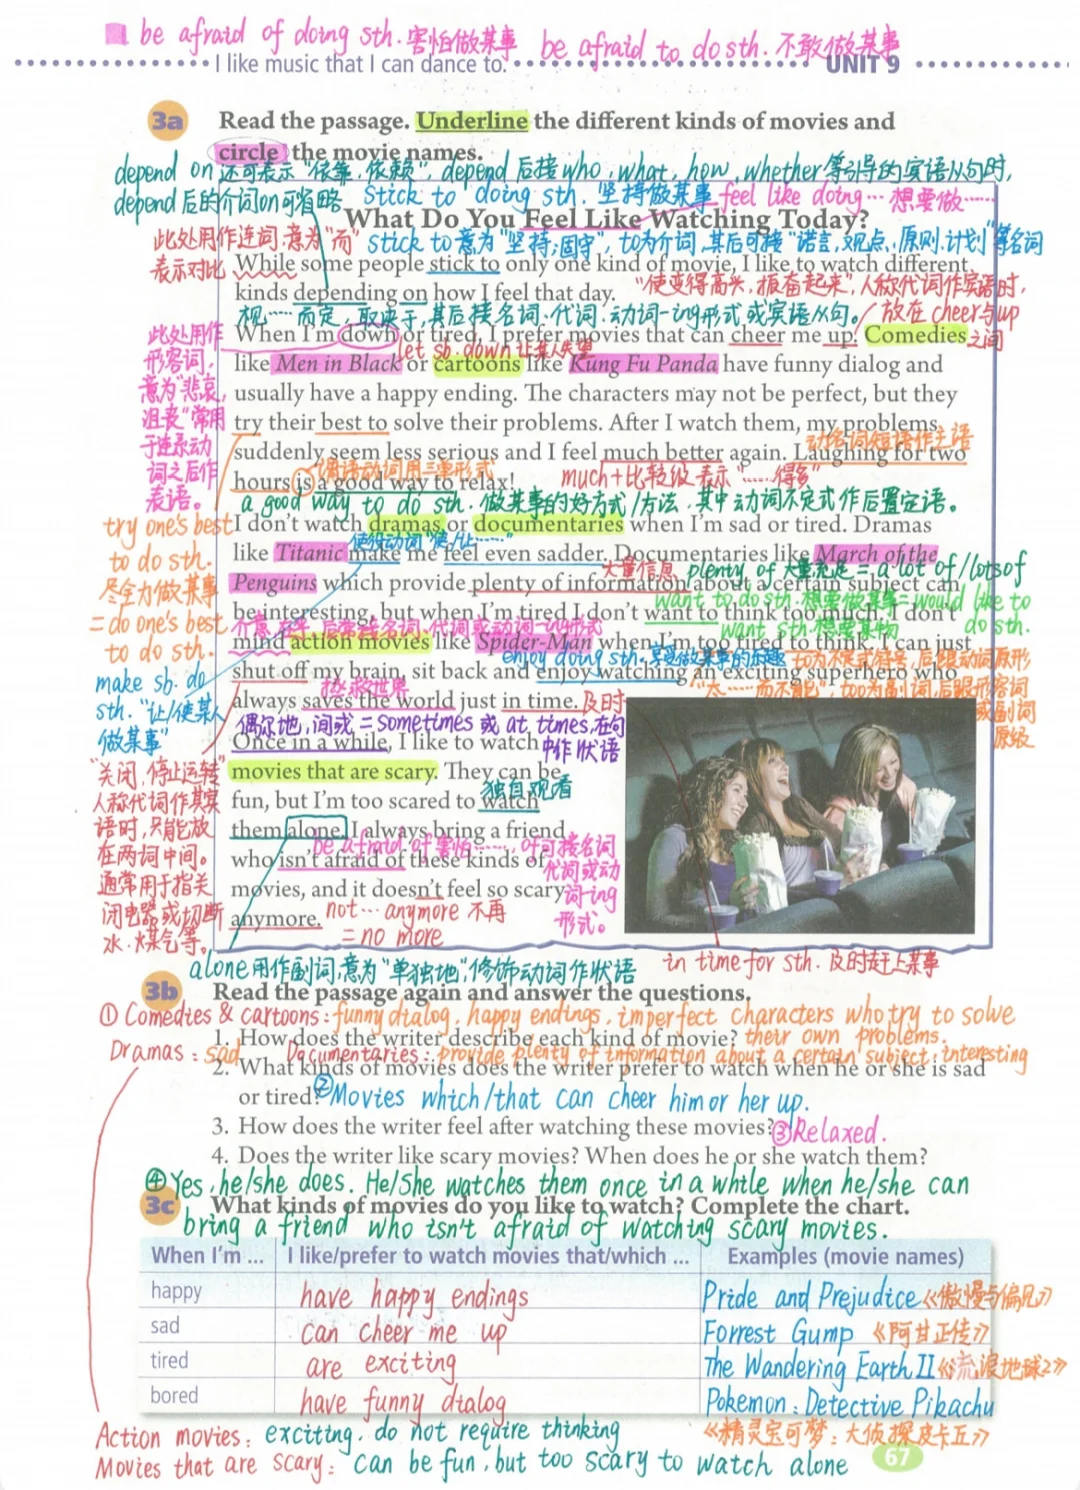 be afraid of doing sth. 害怕做某事 be afraid to do sth. 不敢做某事
I like music that I can dance to. UNIT 9
3a Read the passage. Underline the different kinds of movies and
circle the movie names.
depend on 还可表示“依靠,依赖”,depend后接who, what, how, whether等引导的宾语从句时,
depend后的介词on可省略 stick to doing sth. 坚持做某事 feel like doing… 想要做……
What Do You Feel Like Watching Today?
此处用作连词,意为“而” stick to意为“坚持;固守”, to为介词,其后可接“诺言,观点,原则,计划”等名词
表示对比 While some people stick to only one kind of movie, I like to watch different
kinds depending on how I feel that day. “使变得高兴,振奋起来”,人称代词作宾语时,
视……而定,取决于,其后接名词、代词、动词-ing形式或宾语从句。 放在cheer与up
之间
When I'm down or tired, I prefer movies that can cheer me up. Comedies
let sb. down 让某人失望
此处用作
形容词,
意为“悲哀,
沮丧”常用
于连系动
词之后作
表语。
like Men in Black or cartoons like Kung Fu Panda have funny dialog and
usually have a happy ending. The characters may not be perfect, but they
try their best to solve their problems. After I watch them, my problems
suddenly seem less serious and I feel much better again. Laughing for two
动名词短语作主语
谓语动词用三单形式
hours is a good way to relax! much+比较级 表示“……得多”
a good way to do sth. 做某事的好方式/方法,其中动词不定式作后置定语。
try one's best
to do sth.
尽全力做某事
= do one's best
to do sth.
I don't watch dramas or documentaries when I'm sad or tired. Dramas
使役动词“使/让……”
like Titanic make me feel even sadder. Documentaries like March of the
大量信息 plenty of 大量充足 = a lot of / lots of
Penguins which provide plenty of information about a certain subject can
want to do sth. 想要做某事 = would like to
do sth.
be interesting, but when I'm tired I don't want to think too much. I don't
want sth. 想要某物
介意,在乎,后常接名词、代词或动词-ing形式
mind action movies like Spider-Man when I'm too tired to think. I can just
enjoy doing sth. 享受做某事的乐趣 to为不定式符号,后跟动词原形
shut off my brain, sit back and enjoy watching an exciting superhero who
“太……而不能”,too为副词,后跟形容词
或副词
原级
make sb. do
sth. “让/使某人
做某事”
拯救世界
always saves the world just in time. 及时
偶尔地,间或 = sometimes 或 at times,在句
中作状语
Once in a while, I like to watch
movies that are scary. They can be
独自观看
fun, but I'm too scared to watch
them alone. I always bring a friend
be afraid of 害怕……,of可接名词
代词或动
词-ing
形式。
who isn't afraid of these kinds of
movies, and it doesn't feel so scary
anymore. not… anymore 不再
= no more
“关闭,停止运转”
人称代词作其宾
语时,只能放
在两词中间。
通常用于指关
闭电器或切断
水、煤气等。
alone用作副词,意为“单独地”,修饰动词作状语
in time for sth. 及时赶上某事
3b Read the passage again and answer the questions.
① Comedies & cartoons: funny dialog, happy endings, imperfect characters who try to solve
1. How does the writer describe each kind of movie? their own problems.
Dramas: sad Documentaries: provide plenty of information about a certain subject; interesting
2. What kinds of movies does the writer prefer to watch when he or she is sad
or tired? ②Movies which/that can cheer him or her up.
3. How does the writer feel after watching these movies? ③Relaxed.
4. Does the writer like scary movies? When does he or she watch them?
④Yes, he/she does. He/She watches them once in a while when he/she can
3c What kinds of movies do you like to watch? Complete the chart.
bring a friend who isn't afraid of watching scary movies.
When I'm ... I like/prefer to watch movies that/which ... Examples (movie names)
happy have happy endings Pride and Prejudice《傲慢与偏见》
sad can cheer me up Forrest Gump《阿甘正传》
tired are exciting The Wandering Earth II《流浪地球2》
bored have funny dialog Pokemon: Detective Pikachu
《精灵宝可梦:大侦探皮卡丘》
Action movies: exciting, do not require thinking
Movies that are scary: can be fun, but too scary to watch alone
67